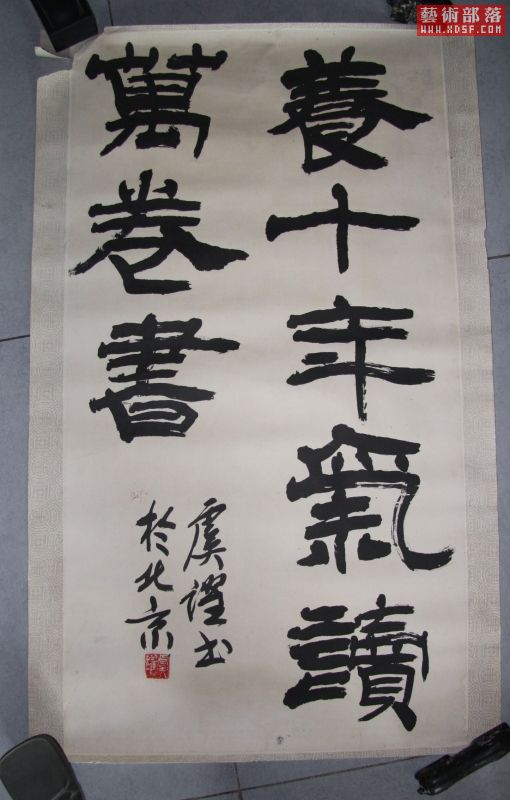 養十年氣讀
萬卷書
虞謹书
於北京
藝術部落
WWW.XDSF.COM